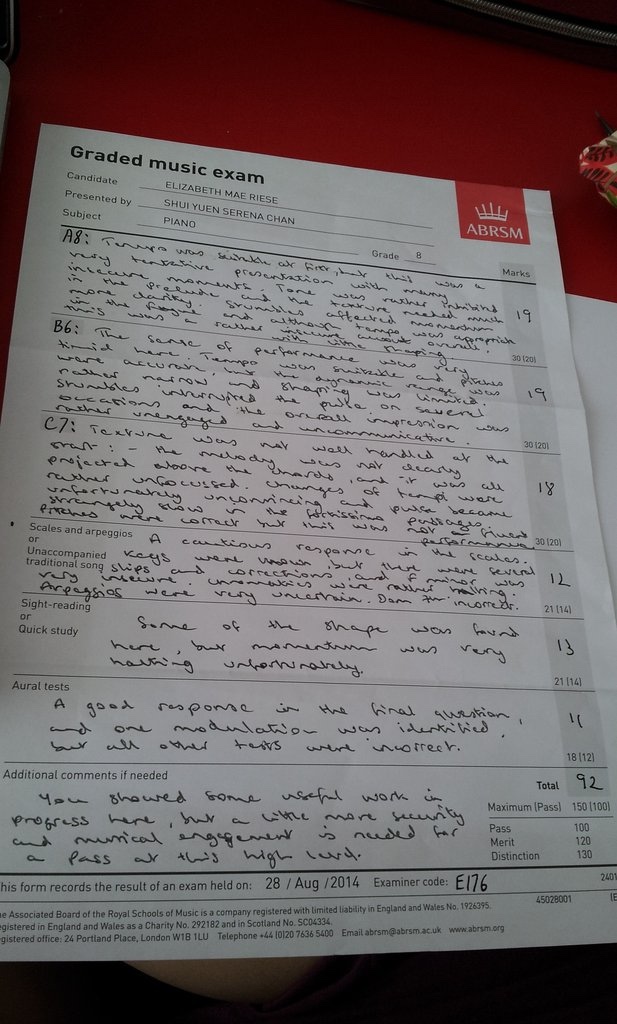 Graded music exam
Candidate ELIZABETH MAE RIESE
Presented by SHUI YUEN SERENA CHAN
Subject PIANO Grade 8
ABRSM
Marks
A8: Tempo was suitable at first, but this was a
very tentative presentation with many
insecure moments. Tone was rather inhibited
in the prelude and the texture needed much
more clarity. Stumbles affected momentum
in the fugue and although tempo was appropriate
this was a rather insecure account overall.
with little shaping.
19
30 (20)
B6: The sense of performance was very
timid here. Tempo was suitable and pitches
were accurate, but the dynamic range was
rather narrow and shaping was limited.
Stumbles interrupted the pulse on several
occasions and the overall impression was
rather unengaged and uncommunicative.
19
30 (20)
C7: Texture was not well handled at the
start: - the melody was not clearly
projected above the chords, and it was all
rather unfocussed. Changes of tempi were
unfortunately unconvincing and pulse became
strangely slow in the fortissimo passages.
Pitches were correct but this was not a fluent
performance.
18
30 (20)
Scales and arpeggios
or
Unaccompanied
traditional song
A cautious response in the scales.
Keys were known, but there were several
slips and corrections, and F minor was
very insecure. Chromatics were rather halting.
Arpeggios were very uncertain. Dom 7th incorrect.
12
21 (14)
Sight-reading
or
Quick study
Some of the shape was found
here, but momentum was very
halting unfortunately.
13
21 (14)
Aural tests
A good response in the final question,
and one modulation was identified,
but all other tests were incorrect.
11
18 (12)
Additional comments if needed
You showed some useful work in
progress here, but a little more security
and musical engagement is needed for
a pass at this high level.
Total 92
Maximum (Pass) 150 (100)
Pass 100
Merit 120
Distinction 130
This form records the result of an exam held on: 28 / Aug / 2014 Examiner code: E176
45028001
The Associated Board of the Royal Schools of Music is a company registered with limited liability in England and Wales No. 1926395.
registered in England and Wales as a Charity No. 292182 and in Scotland No. SC04334.
registered office: 24 Portland Place, London W1B 1LU Telephone +44 (0)20 7636 5400 Email abrsm@abrsm.ac.uk www.abrsm.org